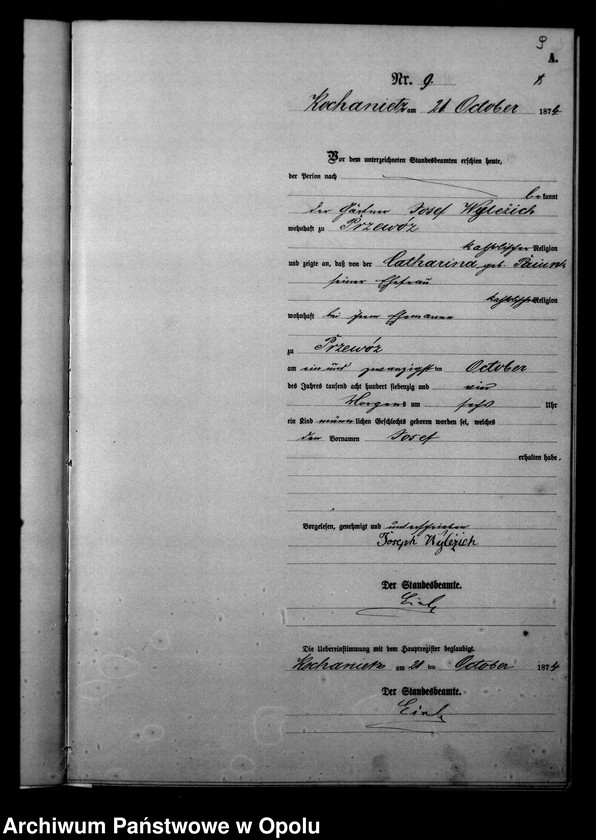 9
A.
Nr. 9.
Kochanietz am 21 October 1874
Vor dem unterzeichneten Standesbeamten erschien heute,
der Person nach
bekannt
der Gärtner Josef Wyležich
wohnhaft zu Przewóz
katholischer Religion
und zeigte an, daß von der Catharina geb.
seiner Ehefrau
katholischer Religion
wohnhaft bei ihrem Ehemanne
zu Przewóz
am ein und zwanzigsten October
des Jahres tausend acht hundert siebenzig und vier
Morgens um sechs Uhr
ein Kind männlichen Geschlechts geboren worden sei, welches
den Vornamen Josef
erhalten habe.
Vorgelesen, genehmigt und unterschrieben
Joseph Wyležich
Der Standesbeamte.
Die Uebereinstimmung mit dem Hauptregister beglaubigt.
Kochanietz am 21 ten October 1874
Der Standesbeamte.
Archiwum Państwowe w Opolu